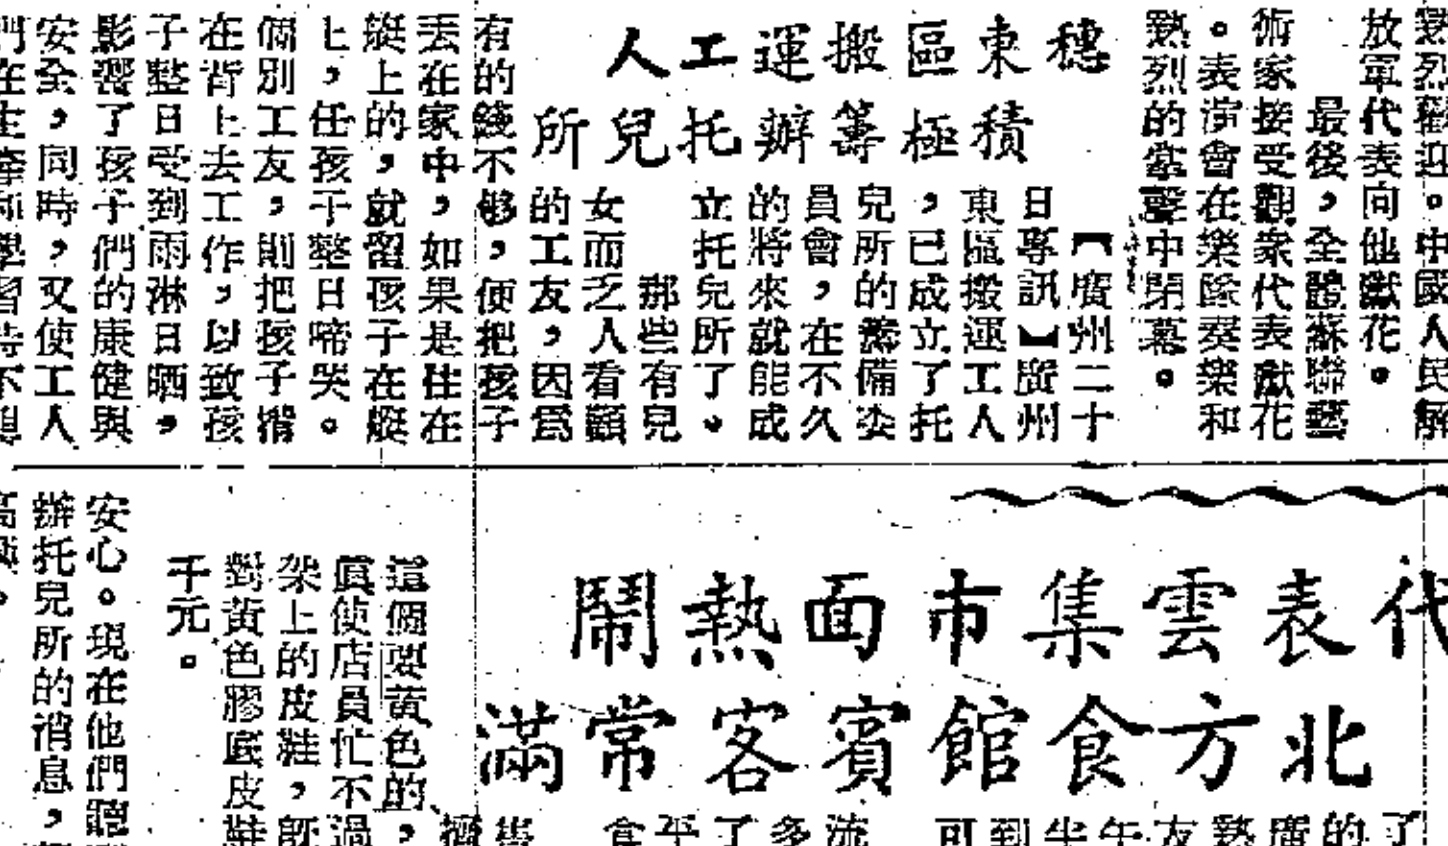 熱烈歡迎。中國人民解
放軍代表向他獻花。
最後，全體蘇聯藝
術家接受觀衆代表獻花
。表演會在樂隊奏樂和
熱烈的掌聲中閉幕。
穗東區搬運工人
積極籌辦托兒所
【廣州二十
日專訊】廣州
東區搬運工人
，已成立了托
兒所的籌備委
員會，在不久
的將來就能成
立托兒所了。
那些有兒
女而乏人看顧
的工友，因爲
有的錢不够，便把孩子
丟在家中，如果是住在
艇上的，就留孩子在艇
上，任孩子整日啼哭。
個別工友，則把孩子揹
在背上去工作，以致孩
子整日受到雨淋日晒，
影響了孩子們的康健與
安全，同時，又使工人
們在生產和學習時不
安心。現在他們聽
辦托兒所的消息，
代表雲集市面熱鬧
北方食館賓客常滿
了
的
廣
熱
友
午
半
到
可
流
多
了
平
食
這個要黃色的，
眞使店員忙不過
架上的皮鞋，既
對黃色膠底皮鞋
千元。